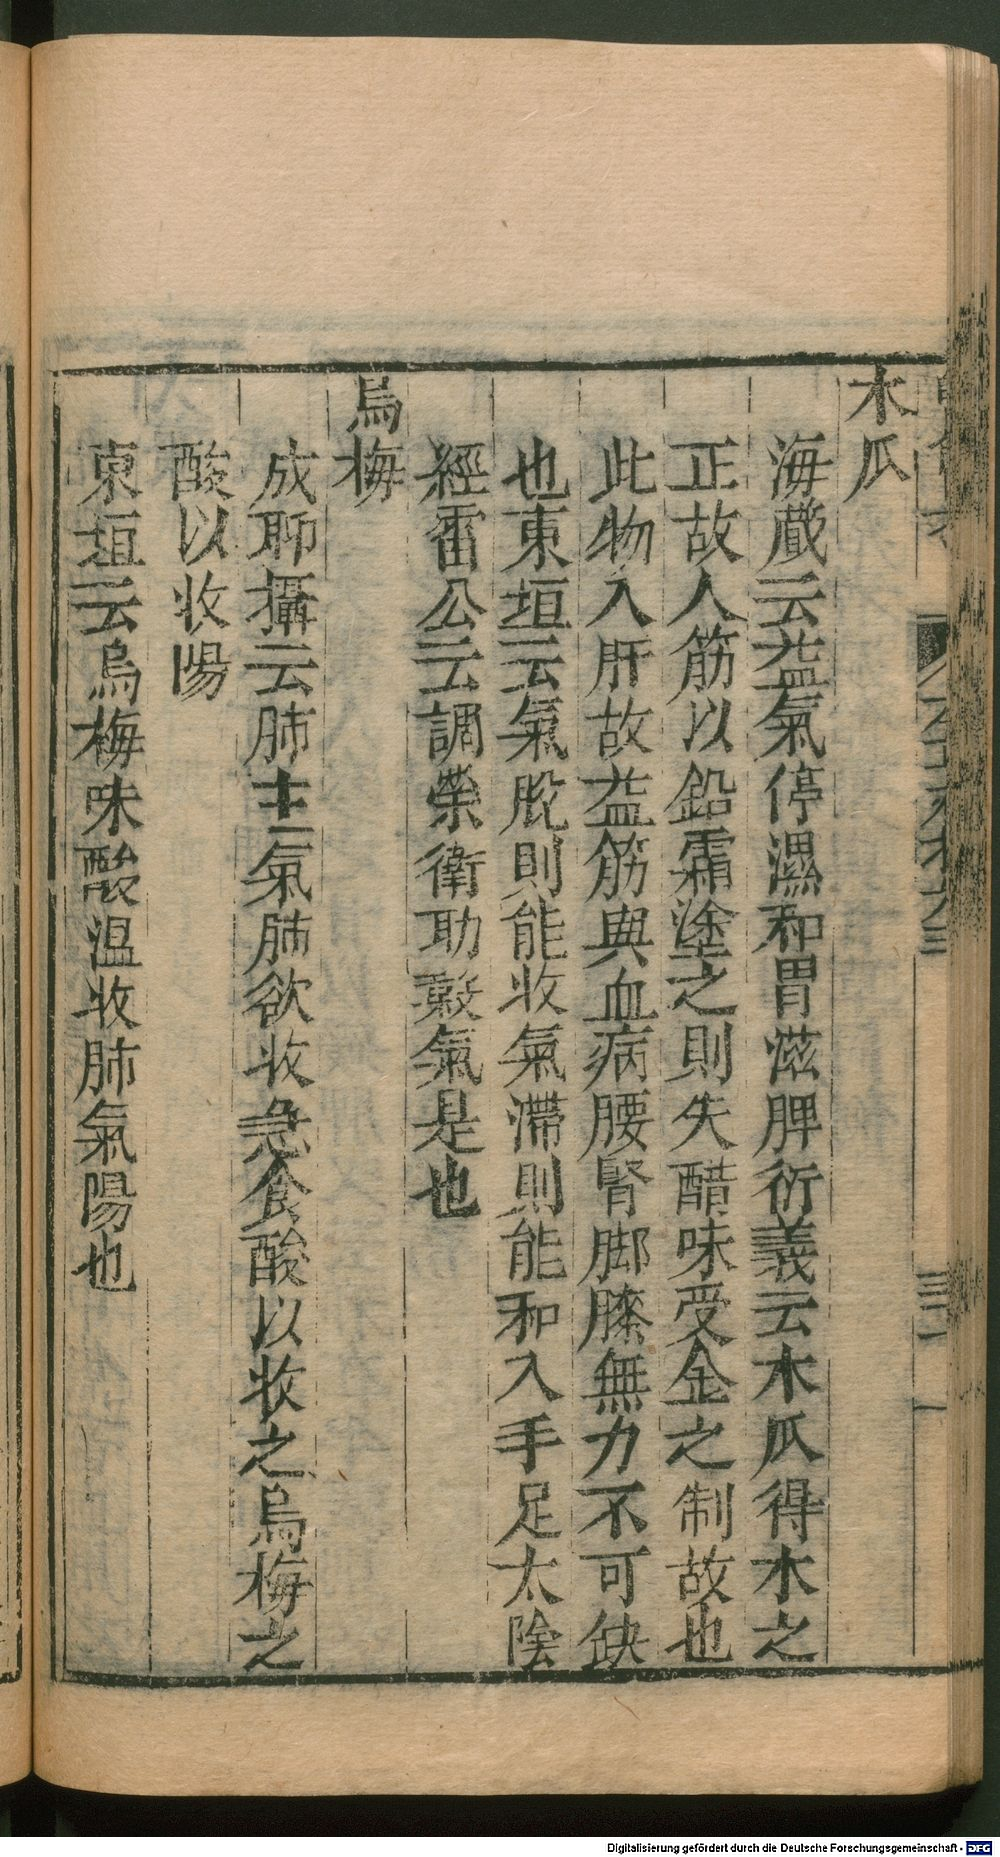 木瓜
海蔵云益氣停濕和胃滋脾衍義云木瓜得木之
正故人筋以鉛霜塗之則失醋味受金之制故也
此物入肝故益筋與血病腰腎脚膝無力不可缺
也東垣云氣脫則能收氣滯則能和入手足太陰
經雷公云調榮衛助穀氣是也
烏梅
成聊攝云肺主氣肺欲收急食酸以收之烏梅之
酸以收陽
東垣云烏梅味酸温收肺氣陽也
Digitalisierung gefördert durch die Deutsche Forschungsgemeinschaft - DFG